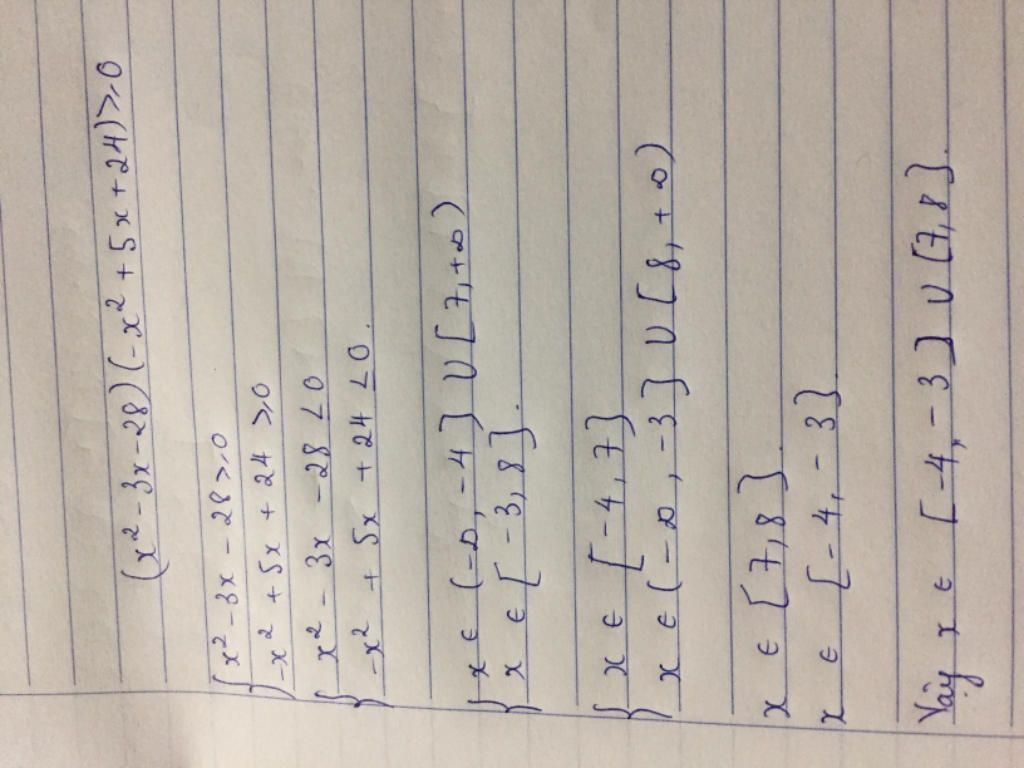 (x² - 3x - 28)(-x² + 5x + 24) ≥ 0
{ x² - 3x - 28 ≥ 0
{ -x² + 5x + 24 ≥ 0
{ x² - 3x - 28 ≤ 0
{ -x² + 5x + 24 ≤ 0.
{ x ∈ (-∞, -4] ∪ [7, +∞)
{ x ∈ [-3, 8].
{ x ∈ [-4, 7]
{ x ∈ (-∞, -3] ∪ [8, +∞)
x ∈ [7, 8]
x ∈ [-4, -3]
Vậy x ∈ [-4, -3] ∪ [7, 8].